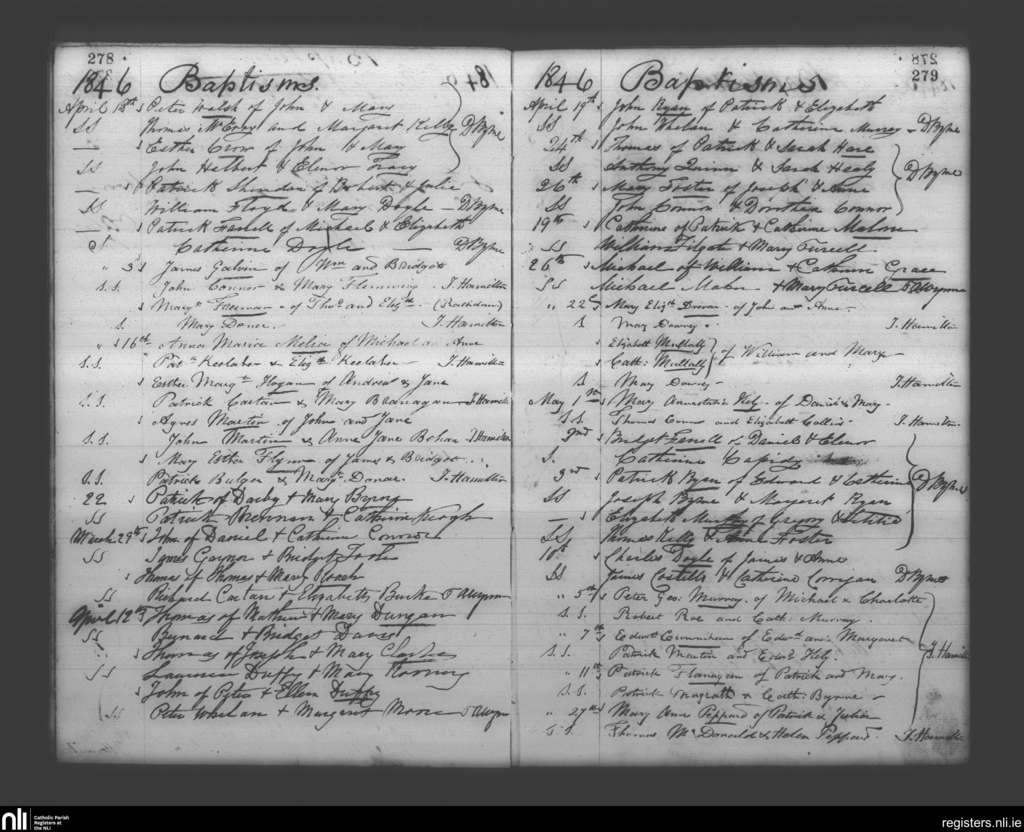 278
1846 Baptisms.
April 18th s Peter Walsh of John & Mary
SS Thomas McEvoy and Margaret Kelly DByrne
— s Esther Crow of John & Mary
SS John Halbert & Elenor Tracy
— s Patrick of Robert & Julia
SS William Floyd & Mary Doyle — DByrne
— s Patrick Farrell of Michael & Elizabeth
S Catherine Doyle — DByrne
" 3 s James Galvin of Wm and Bridget
S.S. John Connor & Mary Flemming J. Hamilton
s Mary Freeman of Thos and Elizth (Rathdrum)
S. Mary Doner. J. Hamilton
" s 16th Anna Maria of Michael an Anne
S.S. Patk Keelaher & Elizth Keelaher J. Hamilton
s Esther Margt Hogan of Andrew & Jane
S.S. Patrick & Mary Branagan J. Hamil
s Agnes Martin of John and Jane
S.S. John Martin & Anne Jane Behan J. Hamilton
s Mary Esther Flynn of James & Bridget
S.S. Patrick Bulger & Margt Doner J. Hamilton
22 s Patrick of Darby & Mary Byrne
SS Patrick Brennan & Catherine Keogh
March 29th s John of Daniel & Catherine Connor
SS James Gaynor & Bridget
s Thomas of Thomas & Mary Roach
SS Richard & Elizabeth Burke
April 12 s Thomas of Mathew & Mary Durgan
SS & Bridget
s Thomas of Joseph & Mary Clarke
SS Laurence Duffy & Mary Rooney
s John of Peter & Ellen Duffy
SS Peter Whelan & Margaret Moore
279
1846 Baptisms
April 19th s John Ryan of Patrick & Elizabeth
SS John Whelan & Catherine Murray DByrne
24th s Thomas of Patrick & Sarah Hare
SS Anthony Quinn & Sarah Healy DByrne
26th s Mary Foster of Joseph & Anne
SS John Connor & Dorothea Connor
19th s Catherine of Patrick & Catherine Malone
SS William Filgate & Mary Purcell
26th s Michael of William & Catherine Grace
SS Michael Maher & Mary Purcell
" 22 s Mary Elizth of John and Anne
S Mary Downey. J. Hamilton
s Elizabeth Mullally
s Cath: Mullally of William and Mary
S May Downey J. Hamilton
May 1st s Mary Annastatia Kely of Daniel & Mary.
S.S. Thomas and Elizabeth Collins J. Hamilton
2nd s Bridget Farrell of Daniel & Elenor
S. Catherine
3rd s Patrick Ryan of Edward & Catherine DByrne
SS Joseph Byrne & Margaret Ryan
— s Elizabeth Murphy of & Letitia
SS Thomas Kelly & Anne Foster
10th s Charles Doyle of James & Anne
SS James Costello & Catherine Corrigan DByrne
" 5th s Peter Geo: Murray of Michael & Charlotte
S.S. Robert Roe and Cath: Murray.
" 7th s Edwd Cunningham of Edwd and Margaret
S.S. Patrick Martin and Kely. J. Hamil
" 11th s Patrick Flanagan of Patrick and Mary.
S.S. Patrick Magrath & Cath: Byrne
" 27th s Mary Anne Peppard of Patrick & Julia
S.S. Thomas McDonald & Helen Peppard. J. Hamilt
nli
Catholic Parish
Registers at
the NLI
registers.nli.ie